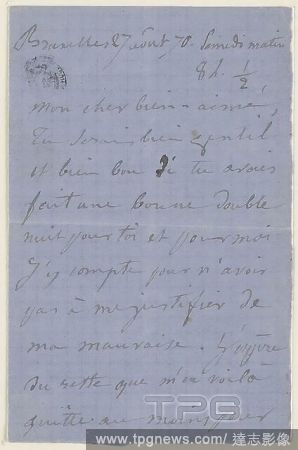 Bruxelles 27 août 70. Samedi matin
8h. ½
mon cher bien-aimé,
Tu serais bien gentil
et bien bon si tu avais
fait une bonne double
nuit pour toi et pour moi
J'y compte pour n'avoir
pas à me justifier de
ma mauvaise. J'espère
du reste que m'en voilà
quitte au moins pour
TPG
www.tpgnews.com/達志影像